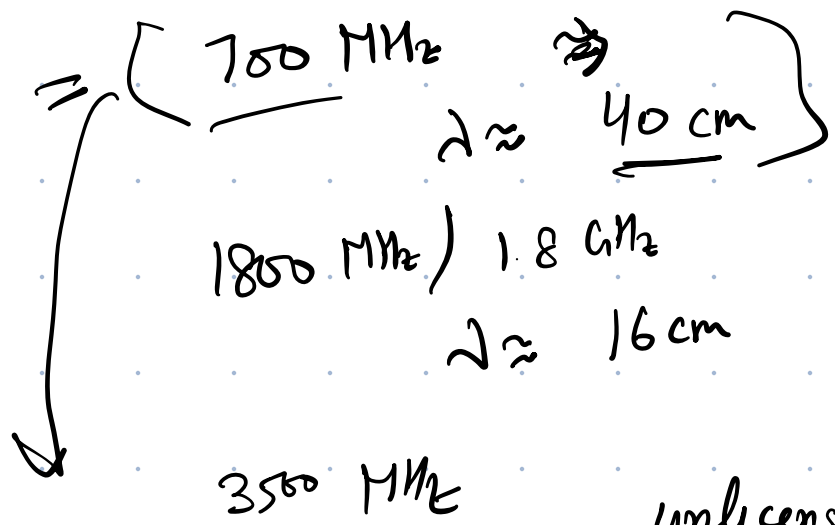 = ( 700 MHz
λ ≈ 40 cm )
1800 MHz / 1.8 GHz
λ ≈ 16 cm
3500 MHz